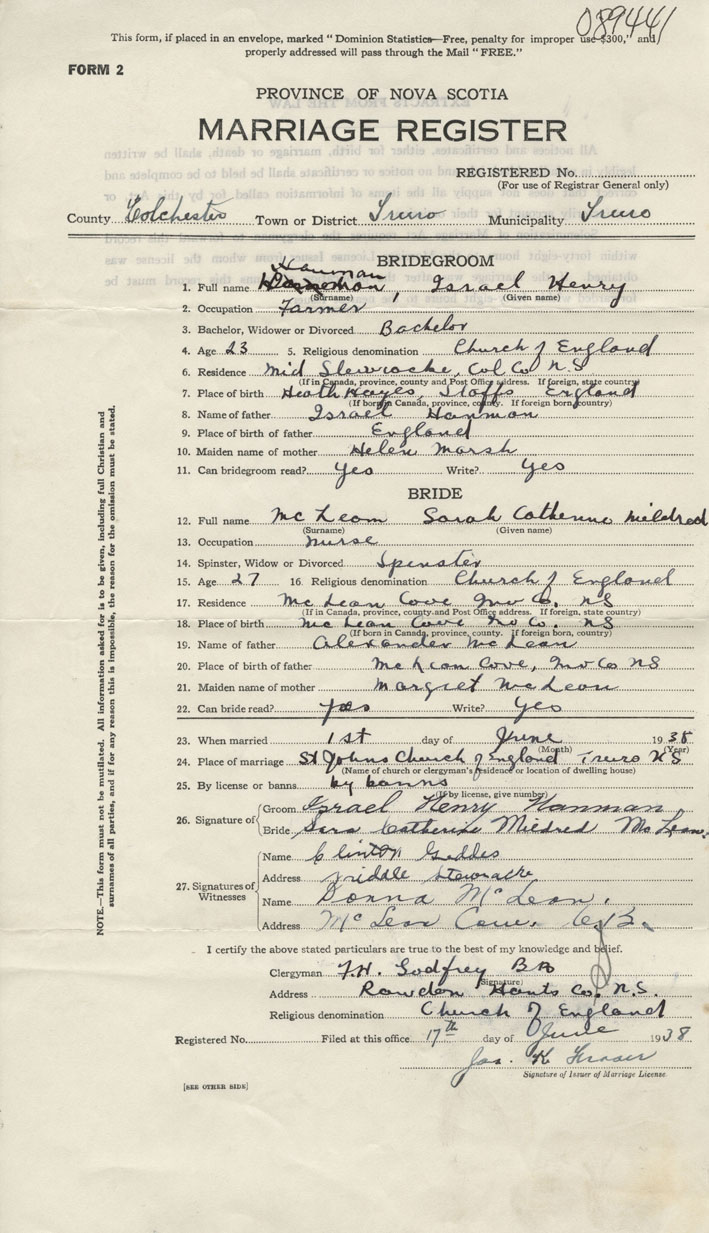 089441
This form, if placed in an envelope, marked "Dominion Statistics—Free, penalty for improper use $300," and
properly addressed will pass through the Mail "FREE."
FORM 2
PROVINCE OF NOVA SCOTIA
MARRIAGE REGISTER
REGISTERED No.
(For use of Registrar General only)
County Colchester Town or District Truro Municipality Truro
BRIDEGROOM
Hanman
1. Full name , Israel Henry
(Surname) (Given name)
2. Occupation Farmer
3. Bachelor, Widower or Divorced Bachelor
4. Age 23 5. Religious denomination Church of England
6. Residence Mid Stewiacke, Col Co N.S
(If in Canada, province, county and Post Office address. If foreign, state country)
7. Place of birth Heath Hayes, Staffs England
(If born in Canada, province, county. If foreign born, country)
8. Name of father Israel Hanman
9. Place of birth of father England
10. Maiden name of mother Helen Marsh
11. Can bridegroom read? Yes Write? Yes
BRIDE
12. Full name McLean Sarah Catherine Mildred
(Surname) (Given name)
13. Occupation Nurse
14. Spinster, Widow or Divorced Spinster
15. Age 27 16. Religious denomination Church of England
17. Residence McLean Cove Inv Co. NS
(If in Canada, province, county and Post Office address. If foreign, state country)
18. Place of birth McLean Cove Inv Co. NS
(If born in Canada, province, county. If foreign born, country)
19. Name of father Alexander McLean
20. Place of birth of father McLean Cove, Inv Co NS
21. Maiden name of mother Margret McLean
22. Can bride read? Yes Write? Yes
23. When married 1st day of June 1938
(Month) (Year)
24. Place of marriage St Johns Church of England Truro N.S
(Name of church or clergyman's residence or location of dwelling house)
25. By license or banns by banns
(If by license, give number)
26. Signature of Groom Israel Henry Hanman
Bride Sara Catherine Mildred McLean.
27. Signatures of Witnesses
Name Clinton Geddes
Address Stewiacke
Name Donna McLean.
Address McLean Cove. C.B.
I certify the above stated particulars are true to the best of my knowledge and belief.
Clergyman F.H. Godfrey
(Signature)
Address Rawdon Hants Co. N.S.
Religious denomination Church of England
Registered No. Filed at this office 17th day of June 1938
Jas. K Fraser
Signature of Issuer of Marriage License
[SEE OTHER SIDE]
NOTE.—This form must not be mutilated. All information asked for is to be given, including full Christian and
surnames of all parties, and if for any reason this is impossible, the reason for the omission must be stated.